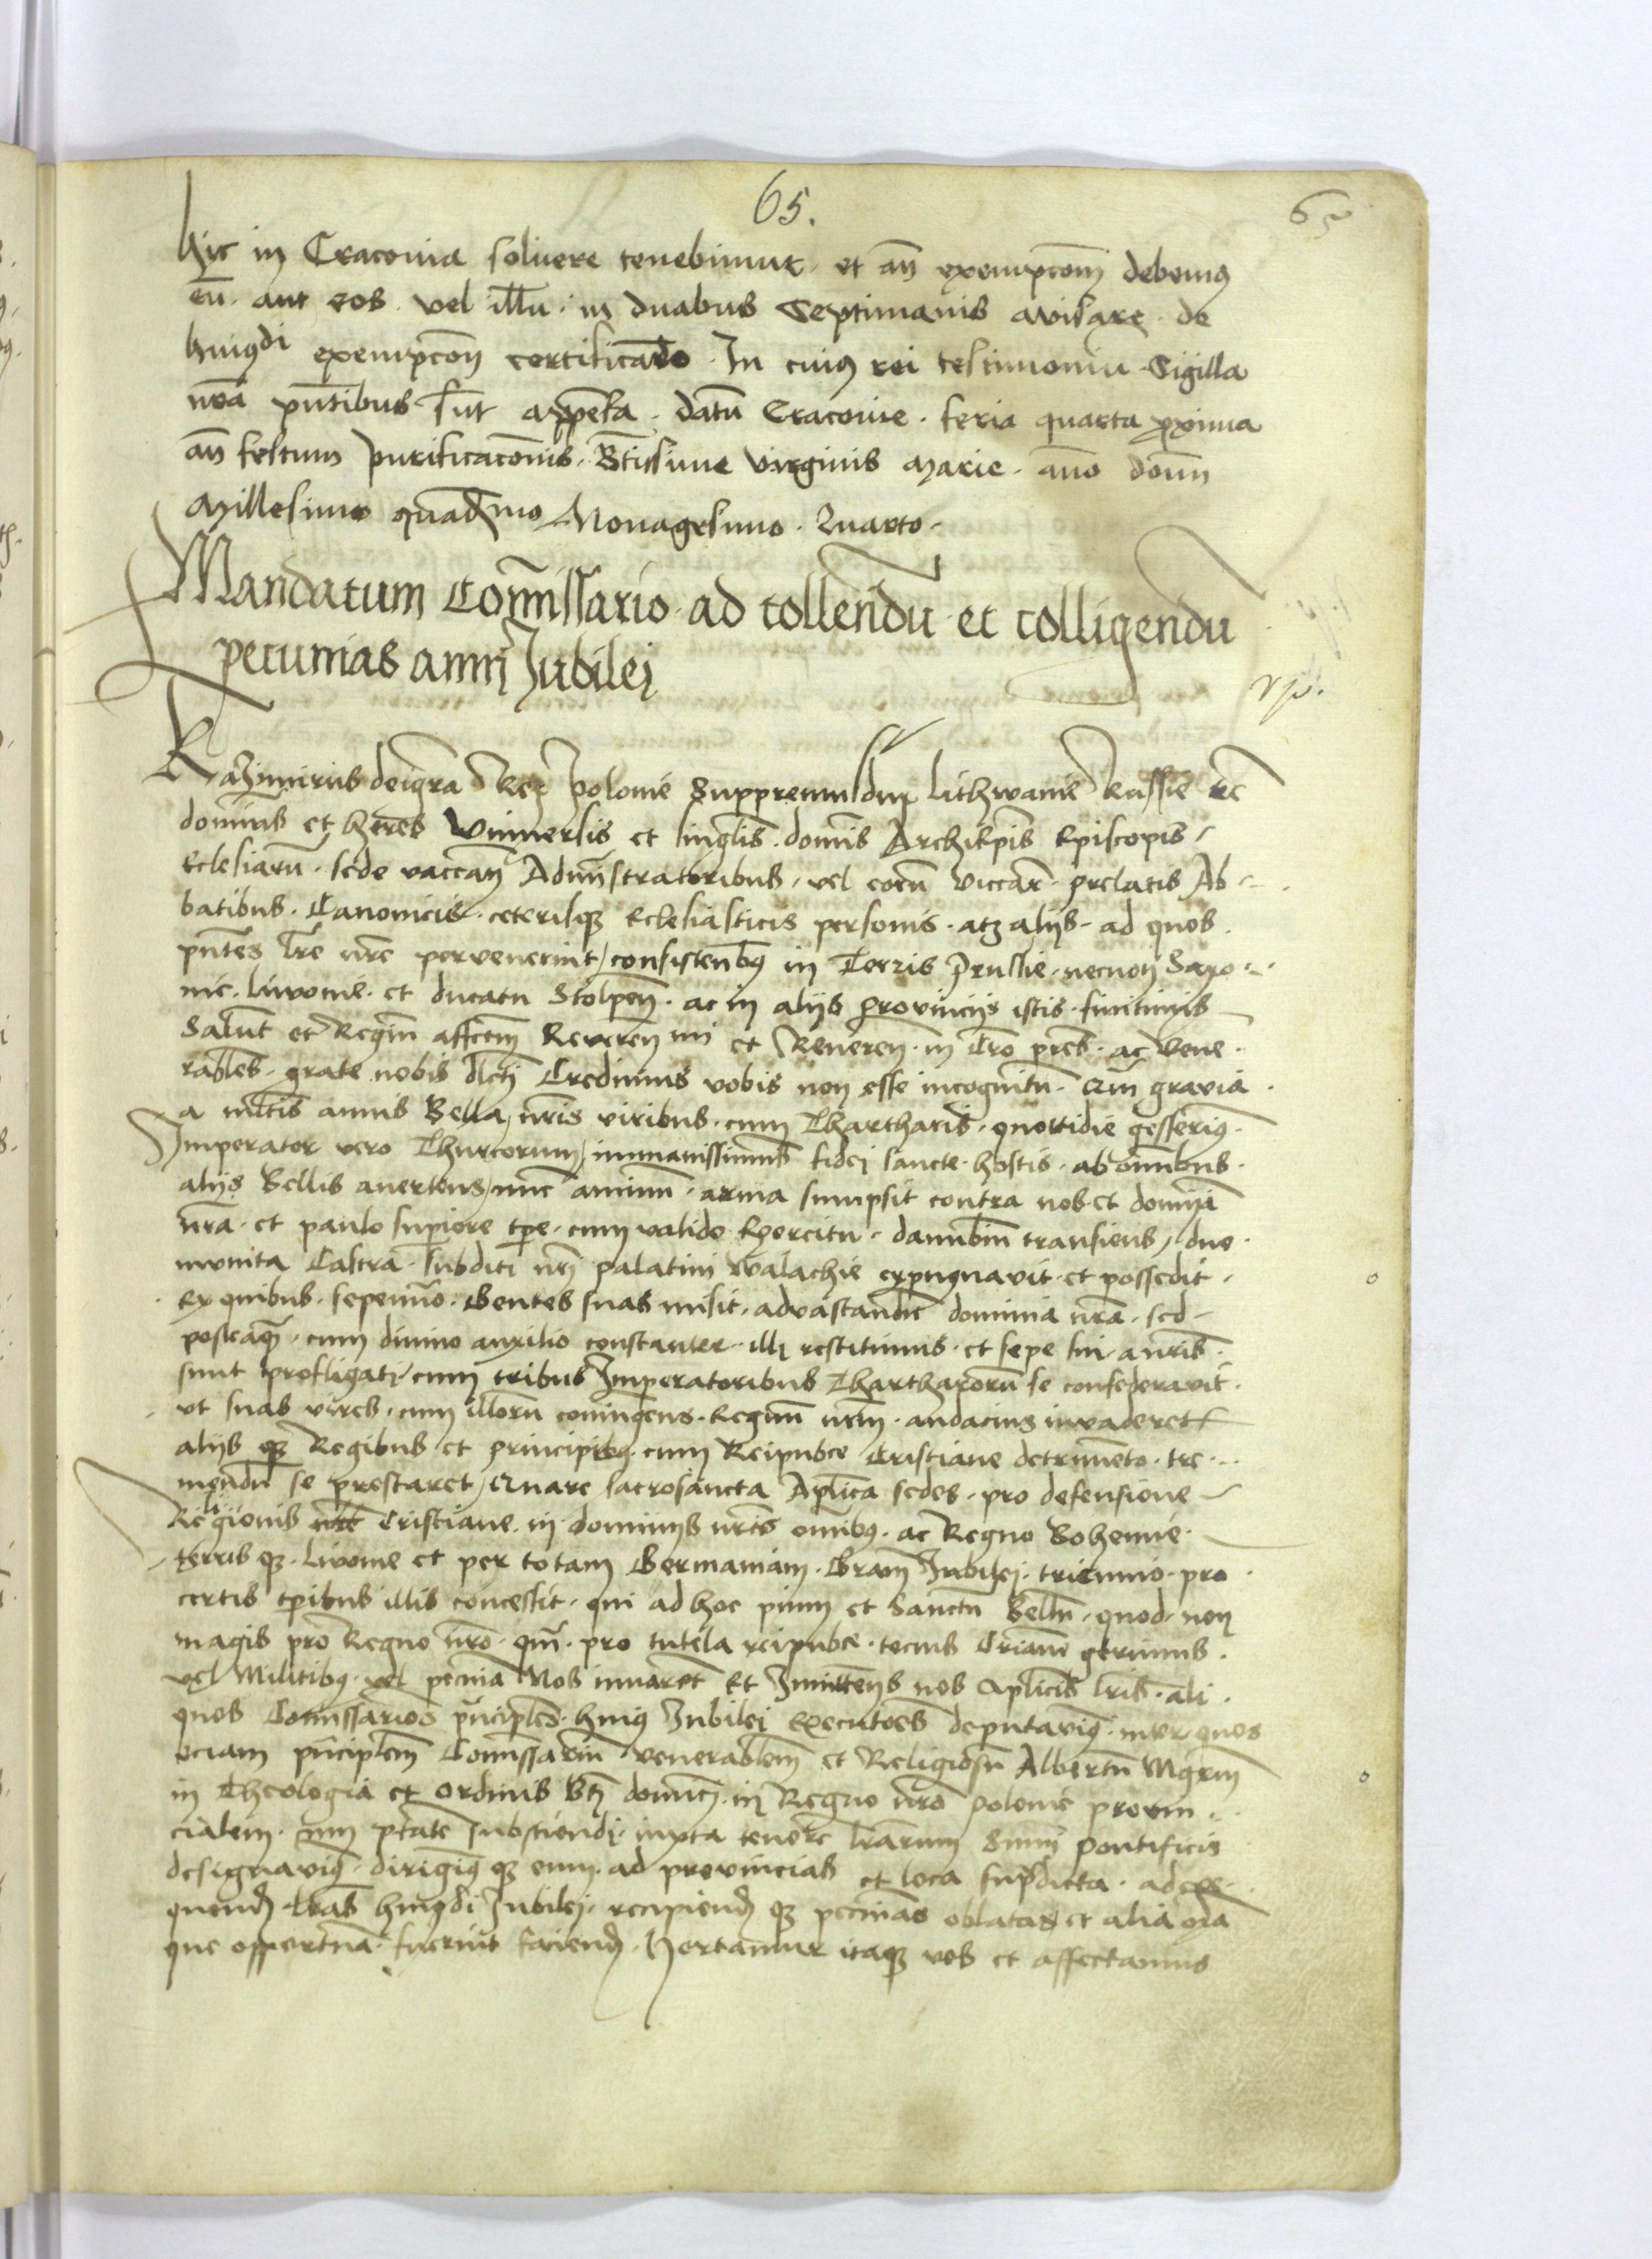 65.
65
hic in Cracovia solvere tenebimur. et an̄ exempcōm debemꝰ
eū. aut eos. vel illū. in duabus Septimanis avisare. de
huiꝰdi exempcōn certificādo. In cuiꝰ rei testimoniū Sigilla
nr̄a pn̄tibus sūt appēsa. datū Cracovie. feria quarta ꝓxima
an̄ festum purificacōnis. Bt̄issime virginis Marie. ano domī
Millesimo quadmo Nonagesimo. Quarto.
Mandatum Com̄issario ad tollendū et colligendū
pecunias anni Jubilej
Kazimirus deigr̄a Rex Polonie Suppremus dux Lithwanie Russie ꝛc
dominus et heres Universis et singl̄is. domīs Archiepīs Episcopis
Eclesiarū. sede vaccan̄ Admīstratoribus, vel eorū viccar̄. prelatis Ab
batibus. Canonicis. ceterisqꝫ Eclesiasticis personis. atqꝫ alijs. ad quos.
pn̄tes lr̄e nr̄e pervenerint, consistentibꝰ in Terris Prussie. necnon Saxo
nie. Livonie. et ducatu Stolpen̄. ac in alijs provincijs istis. finitimis
Salut̄ et Regiā affectm̄ Reverenmi et Reveren̄. in Cro pr̄es. ac Vene.
rabiles. grate nobis dl̄cti Credimus vobis non esse incognitū. Qm̄ gravia
a mltis annis Bella, nr̄is viribus. cum Thartharis. quottidie gesserimꝰ.
Imperator vero Thurcorum, immanissimus fidei sancte. hostis. ab omnibus.
alijs Bellis avertens, nunc animū. arma sumpsit contra nos et dominia
nr̄a. et paulo superiore tpe. cum valido Exercitu. danubiū transiens, duo.
munita Castra. subditi nr̄i palatini Walachie expugnavit. et possedit.
Ex quibus. sepenūo. Gentes suas misit. advastandū dominia nr̄a. sed
posteaq̄. cum divino auxilio constanter. illi restitimus. et sepe sui. a nr̄is.
sunt profligati, cum tribus Imperatoribus Thartharorū se confederavit.
ut suas vires. cum illorū coniungens. Regnū nr̄m. audacius invaderet
alijs qꝫ Regibus. et principibꝰ. cum Reipubce Cristiane detrimēto. tre
mendū se prestaret, Quare sacrosancta Aplica sedes. pro defensione
Religionis nr̄e Cristiane. in dominijs nr̄is omībꝰ. ac Regno Bohemie.
terris qꝫ. Livonie et per totam Germaniam. Gram̄ Jubilej. triennio. pro
certis tp̄ibus illis concessit. qui ad hoc pium et Sanctū Bellū. quod. non
magis pro Regno nr̄o. qm̄. pro tutela reipubce. tocius Criane gerimus.
vel Militibꝰ. vel pecunia Nos iuvaret Et Jnnitten̄s nos aplicis lris. ali
quos Comissarios principles. huiꝰ Jubilej Executores deputavimꝰ. inter quos
eciam principlem Comissariū venerabilem et Religiosū Albertū Mgr̄m
in Theologia et ordinis Bti dominici. in Regno nr̄o polonie provin
cialem. cum ptāte Jubstiendi. iuxta tenore lr̄arum Summi pontificis
designavimꝰ. dirigimꝰ qꝫ eum. ad provincias et loca supdicta. ad exe
quend. lras huiꝰdi Jubilej. recipiend qꝫ pecunias oblatas et alia oīa
que opportuna. fuerint faciend. Hortamur itaqꝫ vos et affectamus